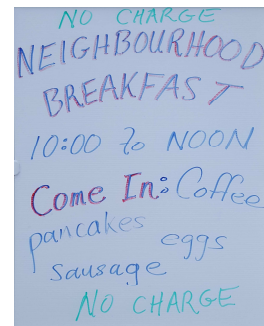 NO CHARGE
NEIGHBOURHOOD
BREAKFAST
10:00 To NOON
Come In: Coffee
pancakes
eggs
sausage
NO CHARGE